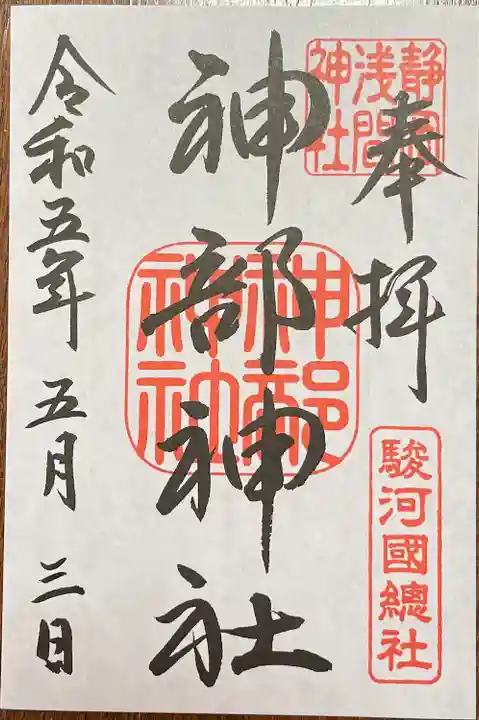 奉拝
静岡
浅間
神社
駿河國總社
神部神社
神部
神社
令和五年五月三日